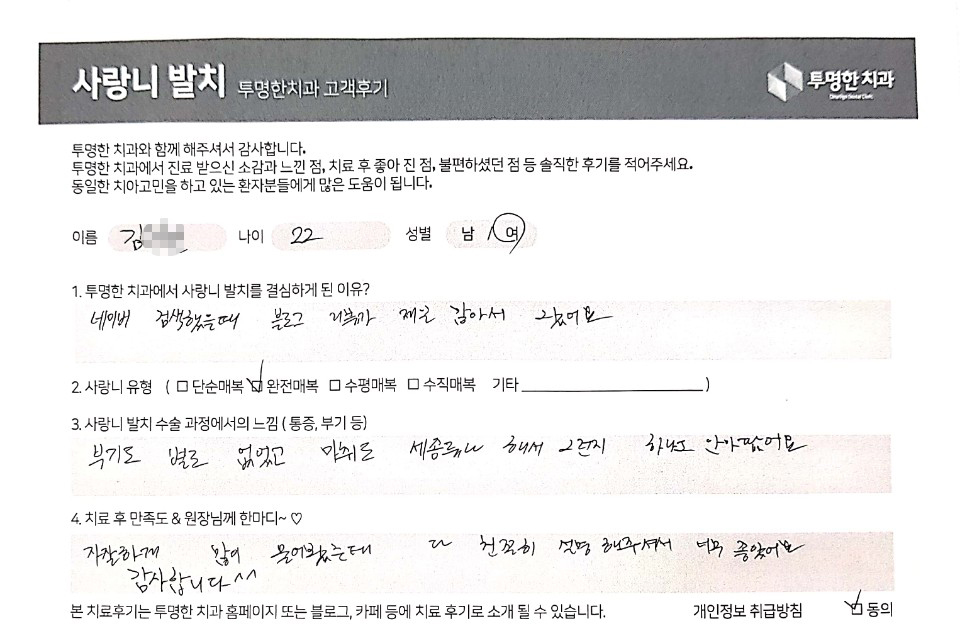 사랑니 발치 투명한치과 고객후기
투명한 치과
투명한 치과와 함께 해주셔서 감사합니다.
투명한 치과에서 진료 받으신 소감과 느낀 점, 치료 후 좋아 진 점, 불편하셨던 점 등 솔직한 후기를 적어주세요.
동일한 치아고민을 하고 있는 환자분들에게 많은 도움이 됩니다.
이름 김 나이 22 성별 남 / 여
1. 투명한 치과에서 사랑니 발치를 결심하게 된 이유?
네이버 검색했을때 블로그 리뷰가 제일 많아서 갔어요
2. 사랑니 유형 ( □ 단순매복 ☑ 완전매복 □ 수평매복 □ 수직매복 기타 )
3. 사랑니 발치 수술 과정에서의 느낌 ( 통증, 부기 등)
부기도 별로 없었고 마취도 세종류나 해서 그런지 하나도 안아팠어요
4. 치료 후 만족도 & 원장님께 한마디~ ♡
자잘하게 많이 물어봤는데 다 친절히 설명 해주셔서 너무 좋았어요
감사합니다 ^^
본 치료후기는 투명한 치과 홈페이지 또는 블로그, 카페 등에 치료 후기로 소개 될 수 있습니다. 개인정보 취급방침 ☑ 동의